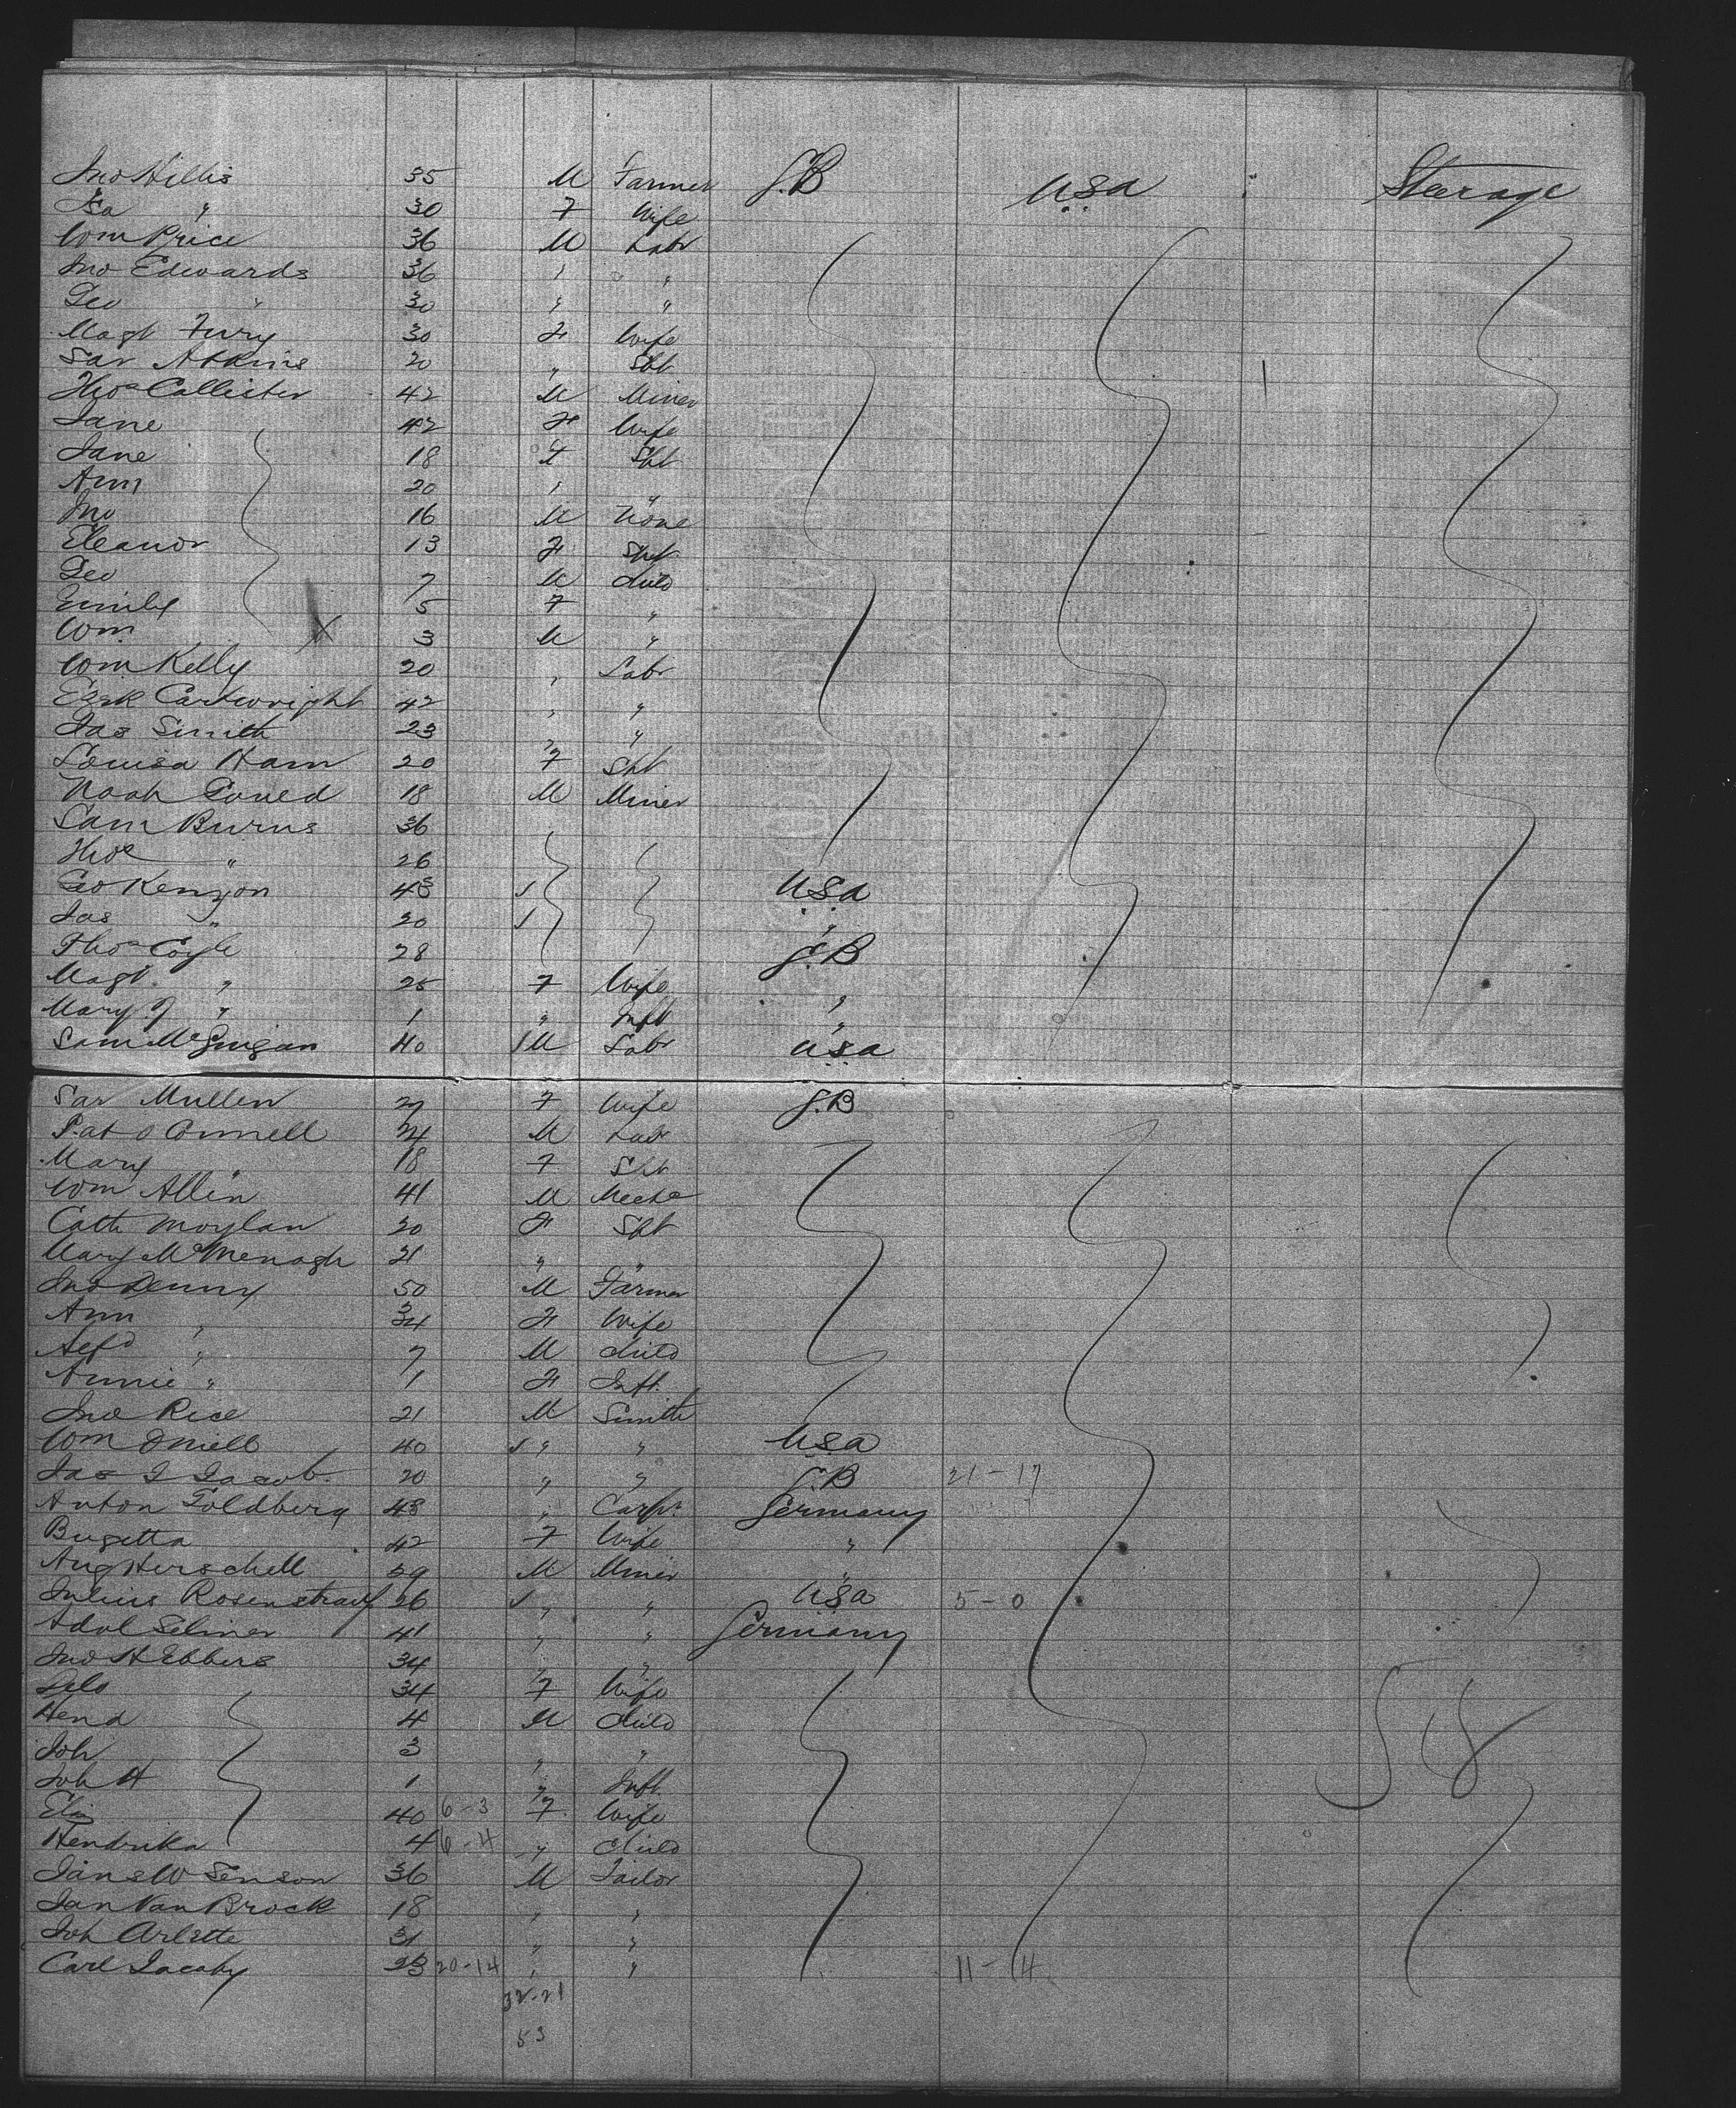 Jno Hillis 35 M Farmer G.B U.S.A Steerage
Isa " 30 F Wife
Wm Price 36 M Labr
Jno Edwards 36 " "
Geo " 30 " "
Magt Fury 30 F Wife
Sar Atkins 20 " Spt
Thos Callister 42 M Miner
Jane 42 F Wife
Jane 18 F Spt
Ann 20 " "
Jno 16 M None
Eleanor 13 F Spt
Geo 7 M Child
Emily 5 F "
Wm 3 M "
Wm Kelly 20 " Labr
Ezrk Cartwright 42 " "
Jas Smith 23 " "
Louisa Ham 20 F Spt
Noah 18 M Miner
Sam Burns 36
Thos " 26
Geo Kenyon U.S.A
Jas " 20 "
Thos Coyle 28 G.B
Magt " 25 F Wife "
Mary J " 1 " Inft "
Sam McGuigan 40 M Labr U.S.A
Sar Mullen 27 F Wife G.B
Pat O Connell 24 M Labr
Mary " 18 F Spt
Wm Allin 41 M Mech
Cath Moylan 20 F Spt
Mary McMenagh 21 " "
Jno Denny 50 M Farmer
Ann " 34 F Wife
Alfd " 7 M Child
Annie " 1 F Inft.
Jno Rice 21 M Smith
Wm ONiell 40 " " U.S.A
Jas J Jacob. 20 " " G.B 21-17
Anton Goldberg 43 " Carpr. Germany
42 F Wife "
Aug Herschell 29 M Miner "
Julius Rosenstrauf 26 " " U.S.A 5-0
Adol 41 " " Germany
Jno H Ebbers 34 " "
34 F Wife
Hend 4 M Child
Joh 3 " "
Joh H 1 " Inft.
Eliz 40 6-3 F Wife
Hendrika 4 6-4 " Child
Jans W Senson 36 M Tailor
Jan Van Brock 18 " "
Joh Arlette 31 " "
Carl Jacoby 23 20-14 " " 11-14
32-21
53